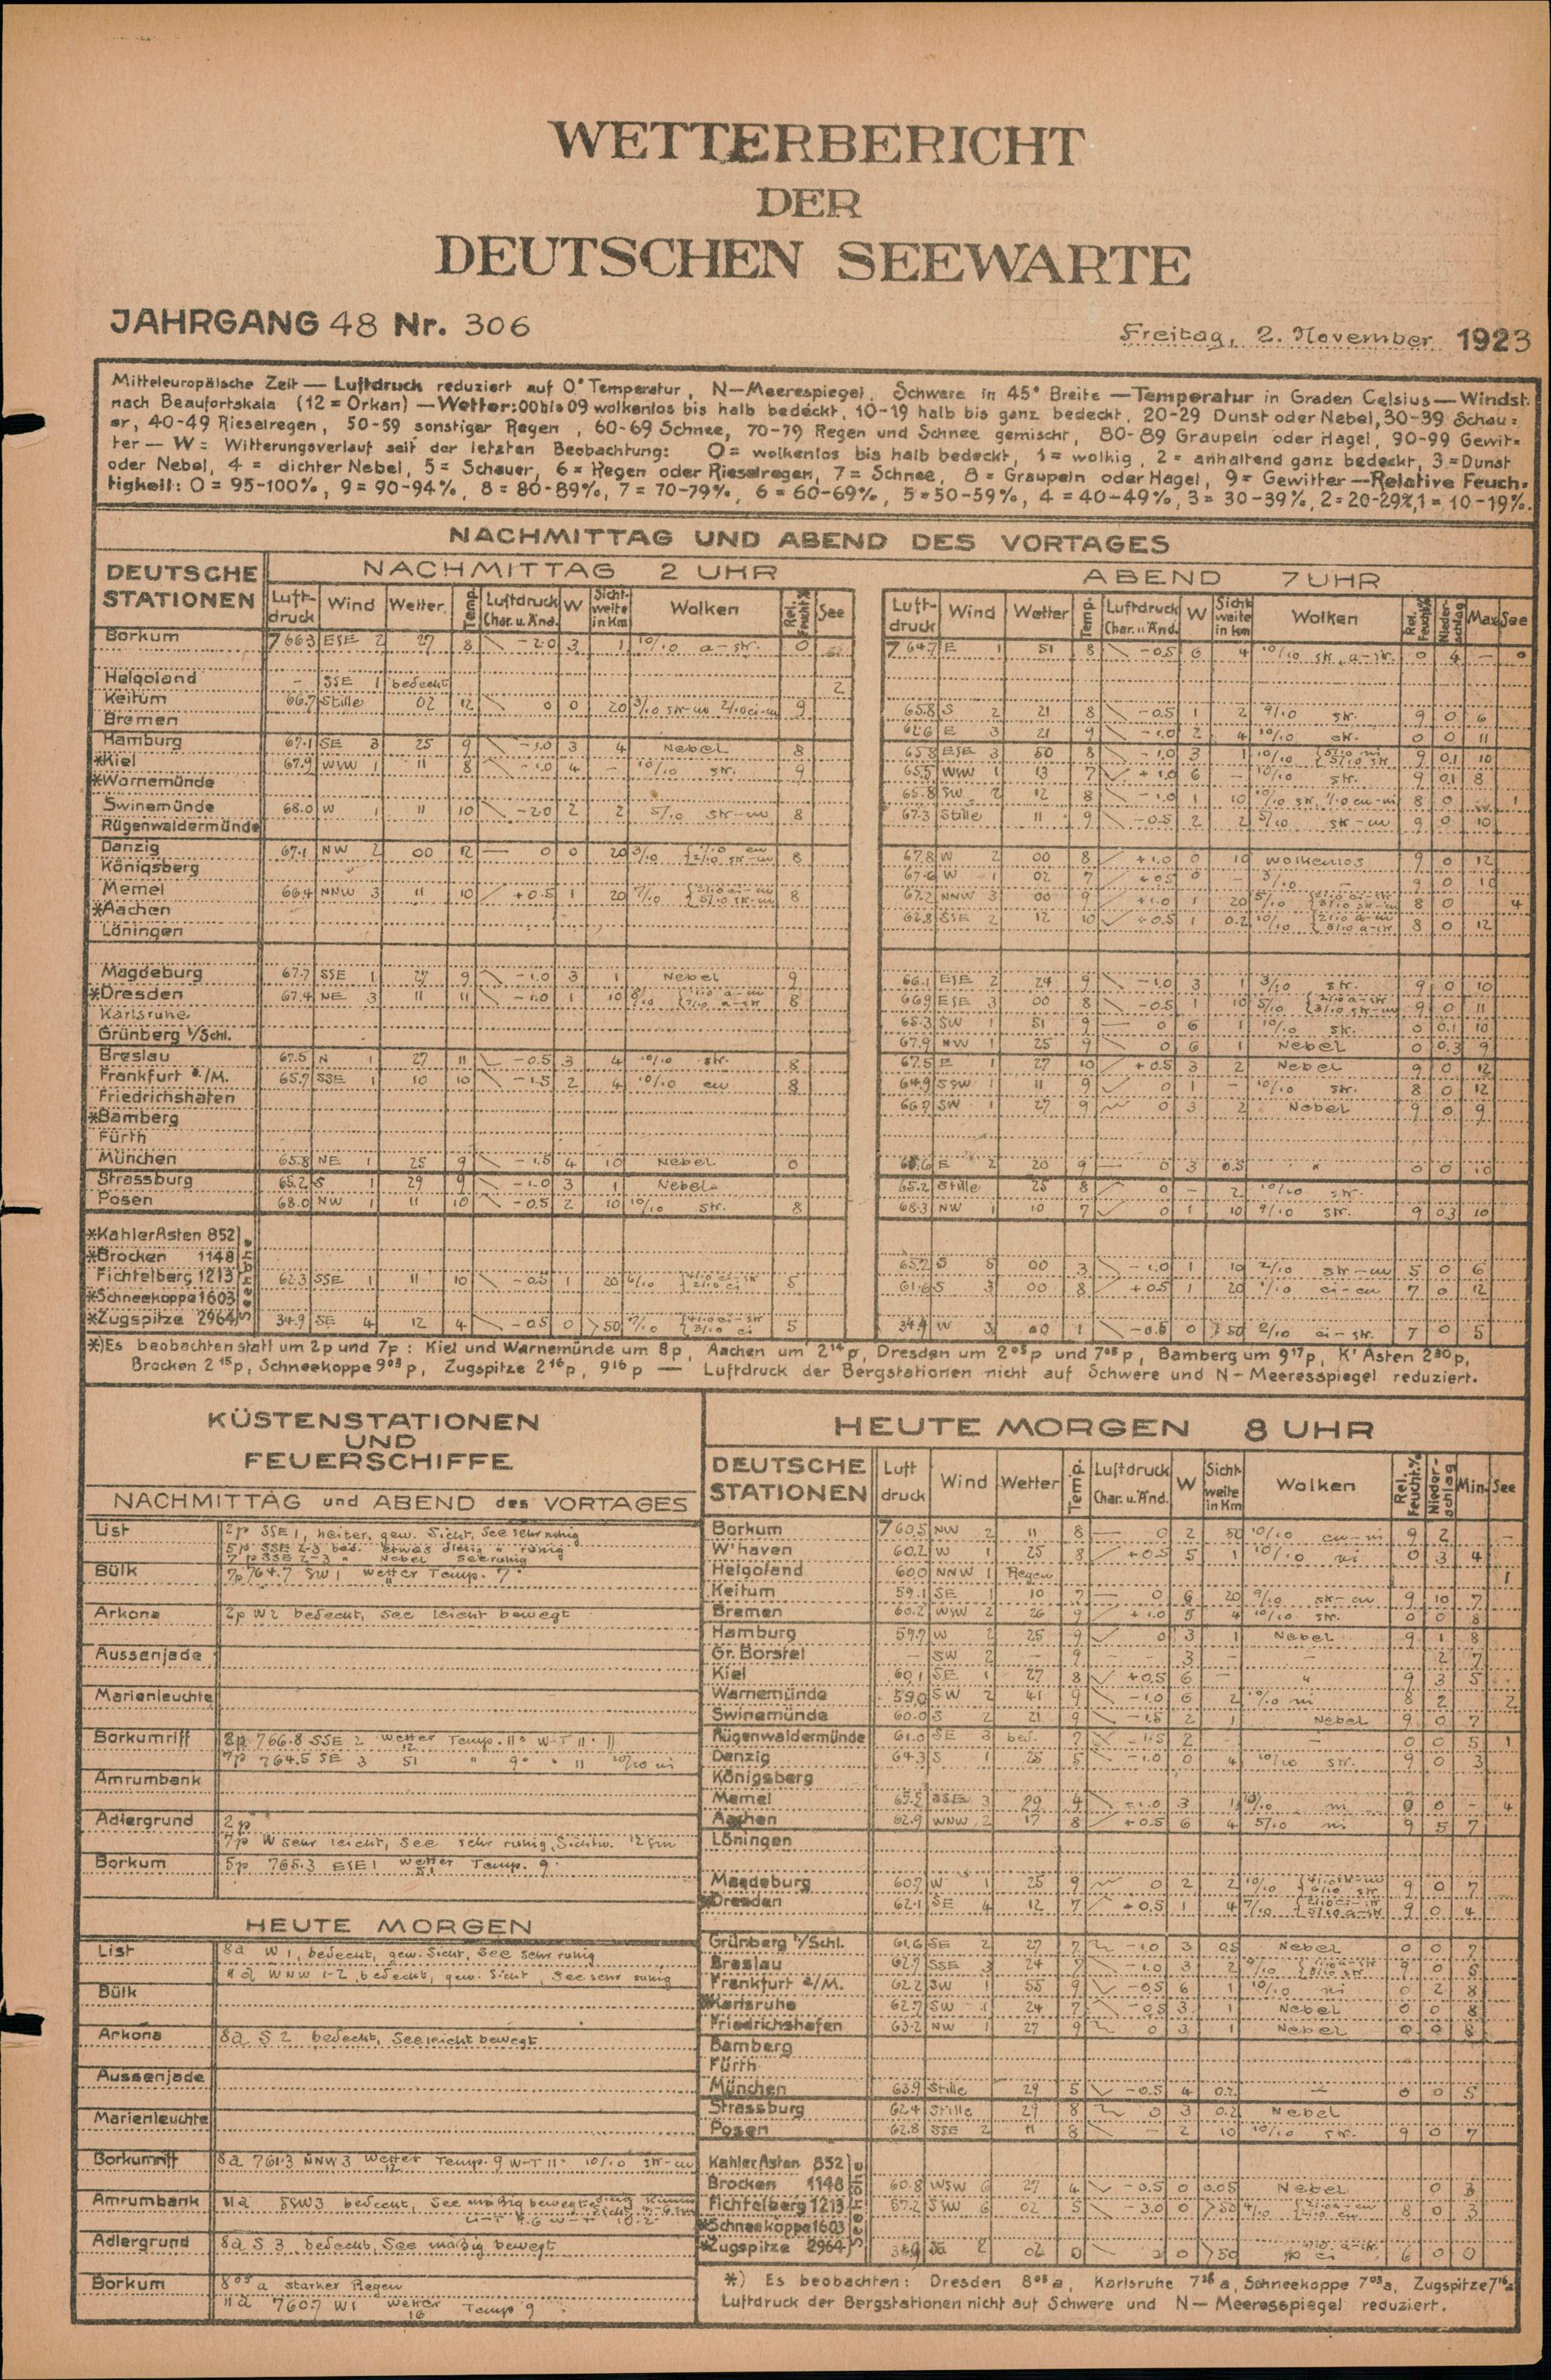 WETTERBERICHT
DER
DEUTSCHEN SEEWARTE
JAHRGANG 48 Nr. 306
Freitag, 2. November 1923
Mitteleuropäische Zeit — Luftdruck reduziert auf 0° Temperatur, N—Meerespiegel, Schwere in 45° Breite — Temperatur in Graden Celsius — Windst.
nach Beaufortskala (12 = Orkan) — Wetter: 00 bis 09 wolkenlos bis halb bedeckt, 10-19 halb bis ganz bedeckt, 20-29 Dunst oder Nebel, 30-39 Schau=
er, 40-49 Rieselregen, 50-59 sonstiger Regen, 60-69 Schnee, 70-79 Regen und Schnee gemischt, 80-89 Graupeln oder Hagel, 90-99 Gewit=
ter — W = Witterungsverlauf seit der letzten Beobachtung: 0 = wolkenlos bis halb bedeckt, 1 = wolkig, 2 = anhaltend ganz bedeckt, 3 = Dunst
oder Nebel, 4 = dichter Nebel, 5 = Schauer, 6 = Regen oder Rieselregen, 7 = Schnee, 8 = Graupeln oder Hagel, 9 = Gewitter — Relative Feuch=
tigkeit: 0 = 95-100%, 9 = 90-94%, 8 = 80-89%, 7 = 70-79%, 6 = 60-69%, 5 = 50-59%, 4 = 40-49%, 3 = 30-39%, 2 = 20-29%, 1 = 10-19%.
NACHMITTAG UND ABEND DES VORTAGES
DEUTSCHE STATIONEN
NACHMITTAG 2 UHR
Luft-druck Wind Wetter Temp. Luftdruck Char. u. Änd. W Sicht-weite in Km Wolken Rel. Feucht.% See
ABEND 7 UHR
Luft-druck Wind Wetter Temp. Luftdruck Char. u. Änd. W Sicht-weite in km Wolken Rel. Feucht.% Nieder-schlag Max See
Borkum 766.3 ESE 2 27 8 -2.0 3 1 10/10 a-str. 0 764.7 E 1 51 8 -0.5 6 4 10/10 str, a-str. 0 4 — 0
Helgoland - SSE 1 bedeckt 2
Keitum 66.7 Stille 02 12 0 0 20 9 65.8 S 2 21 8 -0.5 1 2 9/10 str. 9 0 6
Bremen 62.6 E 3 21 9 -1.0 2 4 10/10 str. 0 0 11
Hamburg 67.1 SE 3 25 9 -1.0 3 4 Nebel 8 65.8 ESE 3 60 8 -1.0 3 1 10/10 9 0.1 10
*Kiel 67.9 WSW 1 11 8 -1.0 4 — 10/10 str. 9 65.5 WSW 1 13 7 +1.0 6 — 10/10 str. 9 0.1 8
*Warnemünde 65.8 SW 2 12 8 -1.0 1 10 8 0 1
Swinemünde 68.0 W 1 11 10 -2.0 2 2 5/10 str-cu 8 67.3 Stille 11 9 -0.5 2 2 5/10 str-cu 9 0 10
Rügenwaldermünde
Danzig 67.1 NW 2 00 12 — 0 0 20 3/10 8 67.8 W 2 00 8 +1.0 0 10 wolkenlos 9 0 12
Königsberg 67.6 W 1 02 7 +0.5 0 — 3/10 — 9 0 10
Memel 66.4 NNW 3 11 10 +0.5 1 20 7/10 8 67.2 NNW 3 00 9 +1.0 1 20 5/10 8 0 4
*Aachen 62.8 SSE 2 12 10 +0.5 1 0.2 10/10 8 0 12
Löningen
Magdeburg 67.7 SSE 1 27 9 -1.0 3 1 Nebel 9 66.1 ESE 2 24 9 -1.0 3 1 3/10 str. 9 0 10
*Dresden 67.4 NE 3 11 11 -1.0 1 10 8 66.9 ESE 3 00 8 -0.5 1 10 5/10 9 0 11
Karlsruhe 65.3 SW 1 51 9 — 0 6 1 10/10 str. 0 0.1 10
Grünberg i/Schl. 67.9 NW 1 25 9 0 6 1 Nebel 0 0.3 9
Breslau 67.5 N 1 27 11 -0.5 3 4 10/10 str. 8 67.5 E 1 27 10 +0.5 3 2 Nebel 9 0 12
Frankfurt a/M. 65.7 SSE 1 10 10 -1.5 2 4 10/10 cu 8 64.9 SSW 1 11 9 0 1 — 10/10 str. 8 0 12
Friedrichshafen 66.7 SW 1 27 9 0 3 2 Nebel 9 0 9
*Bamberg
Fürth
München 65.8 NE 1 25 9 -1.5 4 10 Nebel 0 E 2 20 9 — 0 3 0.5 " 0 0 10
Strassburg 65.2 S 1 29 9 -1.0 3 1 Nebel 65.2 Stille 25 8 0 — 2 10/10 str.
Posen 68.0 NW 1 11 10 -0.5 2 10 10/10 str. 8 68.3 NW 1 10 7 0 1 10 9/10 str. 9 0.3 10
Seehöhe
*Kahler Asten 852
*Brocken 1148 65.2 S 5 00 3 -1.0 1 10 2/10 str-cu 5 0 6
Fichtelberg 1213 62.3 SSE 1 11 10 -0.5 1 20 6/10 5 61.6 S 3 00 8 +0.5 1 20 1/10 ci-cu 7 0 12
*Schneekoppe 1603
*Zugspitze 2964 34.9 SE 4 12 4 -0.5 0 >50 7/10 5 34.9 W 3 00 1 -0.5 0 >50 2/10 ci-str. 7 0 5
*) Es beobachten statt um 2p und 7p: Kiel und Warnemünde um 8p, Aachen um 2¹⁴p, Dresden um 2⁰⁵p und 7⁰⁵p, Bamberg um 9¹⁷p, K' Asten 2³⁰p,
Brocken 2¹⁵p, Schneekoppe 9⁰³p, Zugspitze 2¹⁶p, 9¹⁶p — Luftdruck der Bergstationen nicht auf Schwere und N—Meeresspiegel reduziert.
KÜSTENSTATIONEN
UND
FEUERSCHIFFE
NACHMITTAG und ABEND des VORTAGES
List 2p SSE 1, heiter, gew. Sicht, See sehr ruhig
5p SSE 2-3 bed. etwas diesig " ruhig
7p SSE 2-3 " Nebel See ruhig
Bülk 7p 764.7 SW 1 Wetter Temp. 7°
Arkona 2p W2 bedeckt, See leicht bewegt
Aussenjade
Marienleuchte
Borkumriff 2p 766.8 SSE 2 Wetter 12 Temp. 11° W-T 11°
7p 764.5 SE 3 51 " 9° " 11 10/10 ni
Amrumbank
Adlergrund 2p
7p W sehr leicht, See sehr ruhig, Sichtw. 12 sm
Borkum 5p 765.3 ESE 1 Wetter 51 Temp. 9°
HEUTE MORGEN
List 8a W 1, bedeckt, gew. Sicht, See sehr ruhig
11a WNW 1-2, bedeckt, gew. Sicht, See sehr ruhig
Bülk
Arkona 8a S 2 bedeckt, See leicht bewegt
Aussenjade
Marienleuchte
Borkumriff 8a 761.3 NNW 3 Wetter 12 Temp. 9 W-T 11° 10/10 str-cu
Amrumbank 11a SSW 3 bedeckt, See mäßig bewegt
Adlergrund 8a S 3 bedeckt, See mäßig bewegt
Borkum 8⁰⁵a starker Regen
11a 760.7 W1 Wetter 16 Temp 9°
HEUTE MORGEN 8 UHR
DEUTSCHE STATIONEN Luft druck Wind Wetter Temp. Luftdruck Char. u. Änd. W Sicht-weite in Km Wolken Rel. Feucht.% Nieder-schlag Min. See
Borkum 760.5 NW 2 11 8 — 0 2 50 10/10 cu-ni 9 2 —
W'haven 60.2 W 1 25 8 +0.5 5 1 10/10 ni 0 3 4
Helgoland 60.0 NNW 1 Regen 1
Keitum 59.1 SE 1 10 7 0 6 20 9/10 str-cu 9 10 7
Bremen 60.2 WSW 2 26 9 +1.0 5 4 10/10 str. 0 0 8
Hamburg 59.7 W 2 25 9 0 3 1 Nebel 9 1 8
Gr. Borstel — SW 2 — 9 — — 3 — — 2 7
Kiel 60.1 SE 1 27 8 +0.5 6 — " 9 3 5
Warnemünde 59.0 SW 2 41 9 -1.0 6 2 10/10 ni 8 2 2
Swinemünde 60.0 S 2 21 9 -1.5 2 1 Nebel 9 0 7
Rügenwaldermünde 61.0 SE 3 bed. 7 -1.5 2 - — 0 0 5 1
Danzig 64.3 S 1 25 5 -1.0 0 4 10/10 str. 9 0 3
Königsberg
Memel 65.5 SSE 3 29 4 -1.0 3 1 10/10 ni 0 0 - 4
Aachen 62.9 WNW 2 17 8 +0.5 6 4 5/10 ni 9 5 7
Löningen
Magdeburg 60.7 W 1 25 9 0 2 2 10/10 9 0 7
*Dresden 62.1 SE 4 12 7 +0.5 1 4 7/10 9 0 4
Grünberg i/Schl. 61.6 SE 2 27 7 -1.0 3 0.5 Nebel 0 0 7
Breslau 62.7 SSE 3 24 7 -1.0 3 2 9 0 5
Frankfurt a/M. 62.2 SW 1 55 9 -0.5 6 1 10/10 ni 0 2 8
*Karlsruhe 62.7 SW 1 24 7 -0.5 3 1 Nebel 0 0 8
Friedrichshafen 63.2 NW 1 27 9 0 3 1 Nebel 0 0 8
Bamberg
Fürth
München 63.9 Stille 29 5 -0.5 4 0.2 — 0 0 5
Strassburg 62.4 Stille 29 8 0 3 0.2 Nebel
Posen 62.8 SSE 2 11 8 — 2 10 10/10 str. 9 0 7
Seehöhe
Kahler Asten 852
Brocken 1148 60.8 WSW 6 27 4 -3.5 0 0.05 Nebel 0 3
Fichtelberg 1213 57.2 SSW 6 02 5 -3.0 0 >50 4/10 8 0 3
*Schneekoppe 1603
*Zugspitze 2964 02 0 0 >50 6 0 0
*) Es beobachten: Dresden 8⁰⁵a, Karlsruhe 7²⁶a, Schneekoppe 7⁰³a, Zugspitze 7¹⁶a
Luftdruck der Bergstationen nicht auf Schwere und N—Meeresspiegel reduziert.